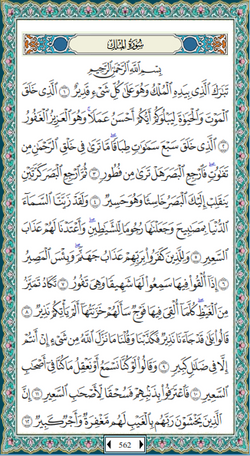 سُورَةُ المُلْكِ
بِسْمِ اللَّهِ الرَّحْمَٰنِ الرَّحِيمِ
تَبَٰرَكَ ٱلَّذِى بِيَدِهِ ٱلْمُلْكُ وَهُوَ عَلَىٰ كُلِّ شَىْءٍ قَدِيرٌ ١ ٱلَّذِى خَلَقَ
ٱلْمَوْتَ وَٱلْحَيَوٰةَ لِيَبْلُوَكُمْ أَيُّكُمْ أَحْسَنُ عَمَلًا وَهُوَ ٱلْعَزِيزُ ٱلْغَفُورُ
٢ ٱلَّذِى خَلَقَ سَبْعَ سَمَٰوَٰتٍ طِبَاقًا مَّا تَرَىٰ فِى خَلْقِ ٱلرَّحْمَٰنِ مِن
تَفَٰوُتٍ فَٱرْجِعِ ٱلْبَصَرَ هَلْ تَرَىٰ مِن فُطُورٍ ٣ ثُمَّ ٱرْجِعِ ٱلْبَصَرَ كَرَّتَيْنِ
يَنقَلِبْ إِلَيْكَ ٱلْبَصَرُ خَاسِئًا وَهُوَ حَسِيرٌ ٤ وَلَقَدْ زَيَّنَّا ٱلسَّمَآءَ
ٱلدُّنْيَا بِمَصَٰبِيحَ وَجَعَلْنَٰهَا رُجُومًا لِّلشَّيَٰطِينِ وَأَعْتَدْنَا لَهُمْ عَذَابَ
ٱلسَّعِيرِ ٥ وَلِلَّذِينَ كَفَرُوا۟ بِرَبِّهِمْ عَذَابُ جَهَنَّمَ وَبِئْسَ ٱلْمَصِيرُ
٦ إِذَآ أُلْقُوا۟ فِيهَا سَمِعُوا۟ لَهَا شَهِيقًا وَهِىَ تَفُورُ ٧ تَكَادُ تَمَيَّزُ
مِنَ ٱلْغَيْظِ كُلَّمَآ أُلْقِىَ فِيهَا فَوْجٌ سَأَلَهُمْ خَزَنَتُهَآ أَلَمْ يَأْتِكُمْ نَذِيرٌ ٨
قَالُوا۟ بَلَىٰ قَدْ جَآءَنَا نَذِيرٌ فَكَذَّبْنَا وَقُلْنَا مَا نَزَّلَ ٱللَّهُ مِن شَىْءٍ إِنْ أَنتُمْ
إِلَّا فِى ضَلَٰلٍ كَبِيرٍ ٩ وَقَالُوا۟ لَوْ كُنَّا نَسْمَعُ أَوْ نَعْقِلُ مَا كُنَّا فِىٓ أَصْحَٰبِ
ٱلسَّعِيرِ ١٠ فَٱعْتَرَفُوا۟ بِذَنۢبِهِمْ فَسُحْقًا لِّأَصْحَٰبِ ٱلسَّعِيرِ ١١ إِنَّ
ٱلَّذِينَ يَخْشَوْنَ رَبَّهُم بِٱلْغَيْبِ لَهُم مَّغْفِرَةٌ وَأَجْرٌ كَبِيرٌ ١٢
562